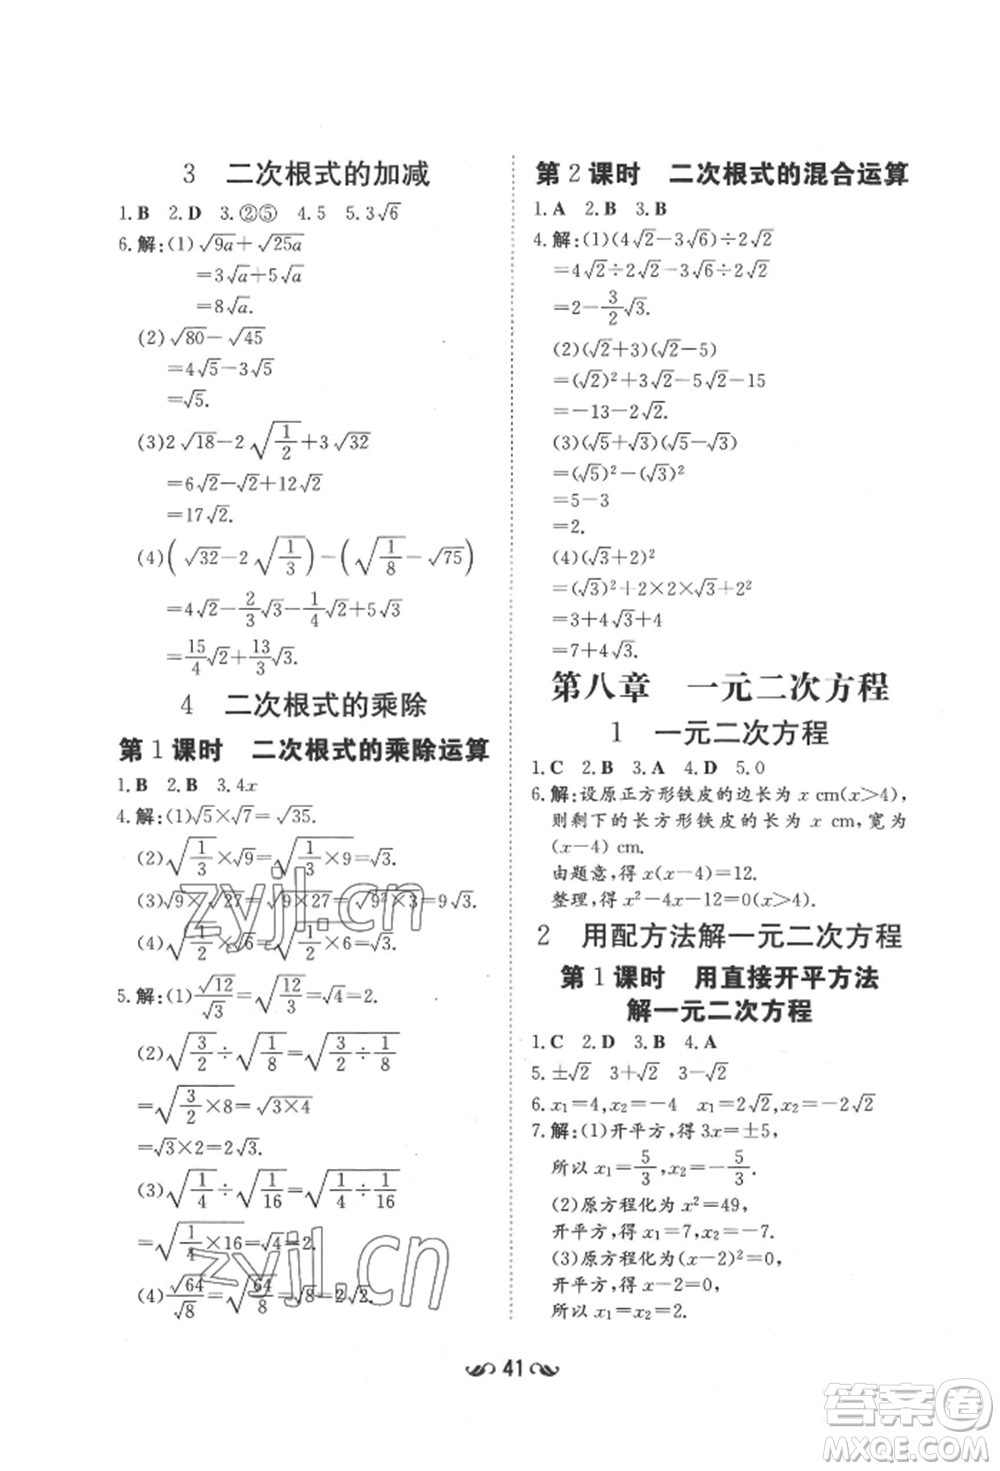 3 二次根式的加减
1.B 2.D 3.②⑤ 4.5 5.3√6
6.解:(1)√9a+√25a
=3√a+5√a
=8√a.
(2)√80-√45
=4√5-3√5
=√5.
(3)2√18-2√(1/2)+3√32
=6√2-√2+12√2
=17√2.
(4)(√32-2√(1/3))-(√(1/8)-√75)
=4√2-2/3√3-1/4√2+5√3
=15/4√2+13/3√3.
4 二次根式的乘除
第1课时 二次根式的乘除运算
1.B 2.B 3.4x
4.解:(1)√5×√7=√35.
(2)√(1/3)×√9=√(1/3×9)=√3.
(3)√9×√27=√(9×27)=√(9²×3)=9√3.
(4)√(1/2)×√6=√(1/2×6)=√3.
5.解:(1)√12/√3=√(12/3)=√4=2.
(2)√(3/2)÷√(1/8)=√(3/2÷1/8)
=√(3/2×8)=√(3×4)
=√3×2=2√3.
(3)√(1/4)÷√(1/16)=√(1/4÷1/16)
=√(1/4×16)=√4=2.
(4)√64/√8=√(64/8)=√8=2√2.
第2课时 二次根式的混合运算
1.A 2.B 3.B
4.解:(1)(4√2-3√6)÷2√2
=4√2÷2√2-3√6÷2√2
=2-3/2√3.
(2)(√2+3)(√2-5)
=(√2)²+3√2-5√2-15
=-13-2√2.
(3)(√5+√3)(√5-√3)
=(√5)²-(√3)²
=5-3
=2.
(4)(√3+2)²
=(√3)²+2×2×√3+2²
=3+4√3+4
=7+4√3.
第八章 一元二次方程
1 一元二次方程
1.C 2.B 3.A 4.D 5.0
6.解:设原正方形铁皮的边长为 x cm(x>4),
则剩下的长方形铁皮的长为 x cm,宽为
(x-4) cm.
由题意,得 x(x-4)=12.
整理,得 x²-4x-12=0(x>4).
2 用配方法解一元二次方程
第1课时 用直接开平方法
解一元二次方程
1.C 2.D 3.B 4.A
5.±√2 3+√2 3-√2
6.x₁=4,x₂=-4 x₁=2√2,x₂=-2√2
7.解:(1)开平方,得3x=±5,
所以 x₁=5/3,x₂=-5/3.
(2)原方程化为 x²=49,
开平方,得 x₁=7,x₂=-7.
(3)原方程化为(x-2)²=0,
开平方,得 x-2=0,
所以 x₁=x₂=2.
41
zyjl.cn
zyjl.cn
答案圈
MXQE.COM